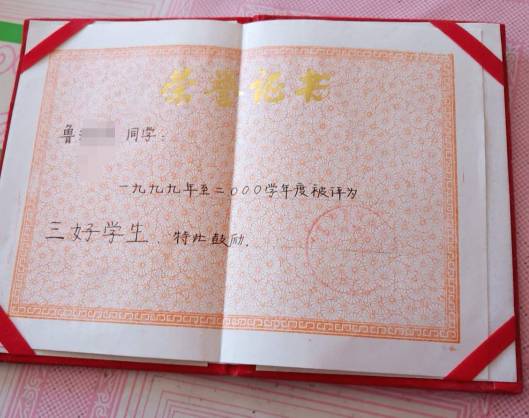 荣誉证书
鲁 同学:
一九九九年至二000学年度被评为
三好学生、特此鼓励.